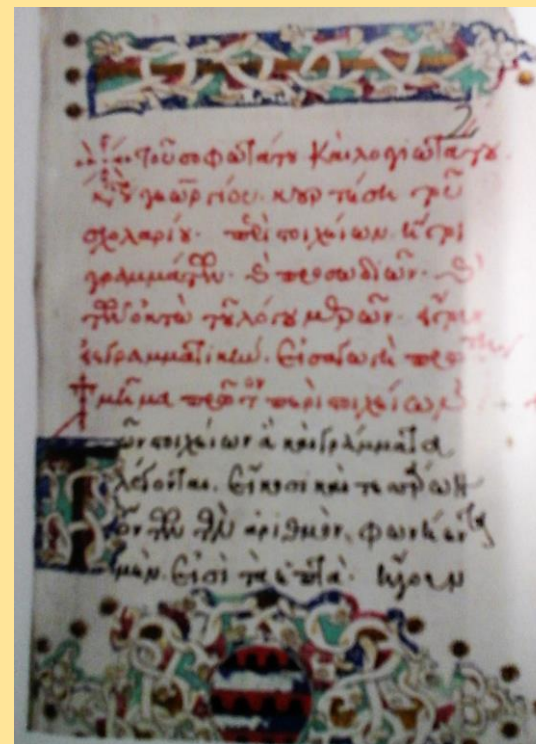 τοῦ σοφωτάτου καὶ λογιωτάτου
γεωργίου κουρτέση τοῦ
σχολαρίου περὶ στοιχείων
γραμμάτων προσωδιῶν
τῶν ὀκτὼ τοῦ λόγου μερῶν
γραμματικῆς εἰσαγωγὴ
τμῆμα πρῶτον περὶ στοιχείων
Τῶν στοιχείων ἃ καὶ γράμματα
λέγονται. Εἴκοσι καὶ τεσσάρων
ὄντων τὸν ἀριθμὸν, φωνήεντα
μὲν εἰσὶ τὰ ἑπτά. ἤγουν